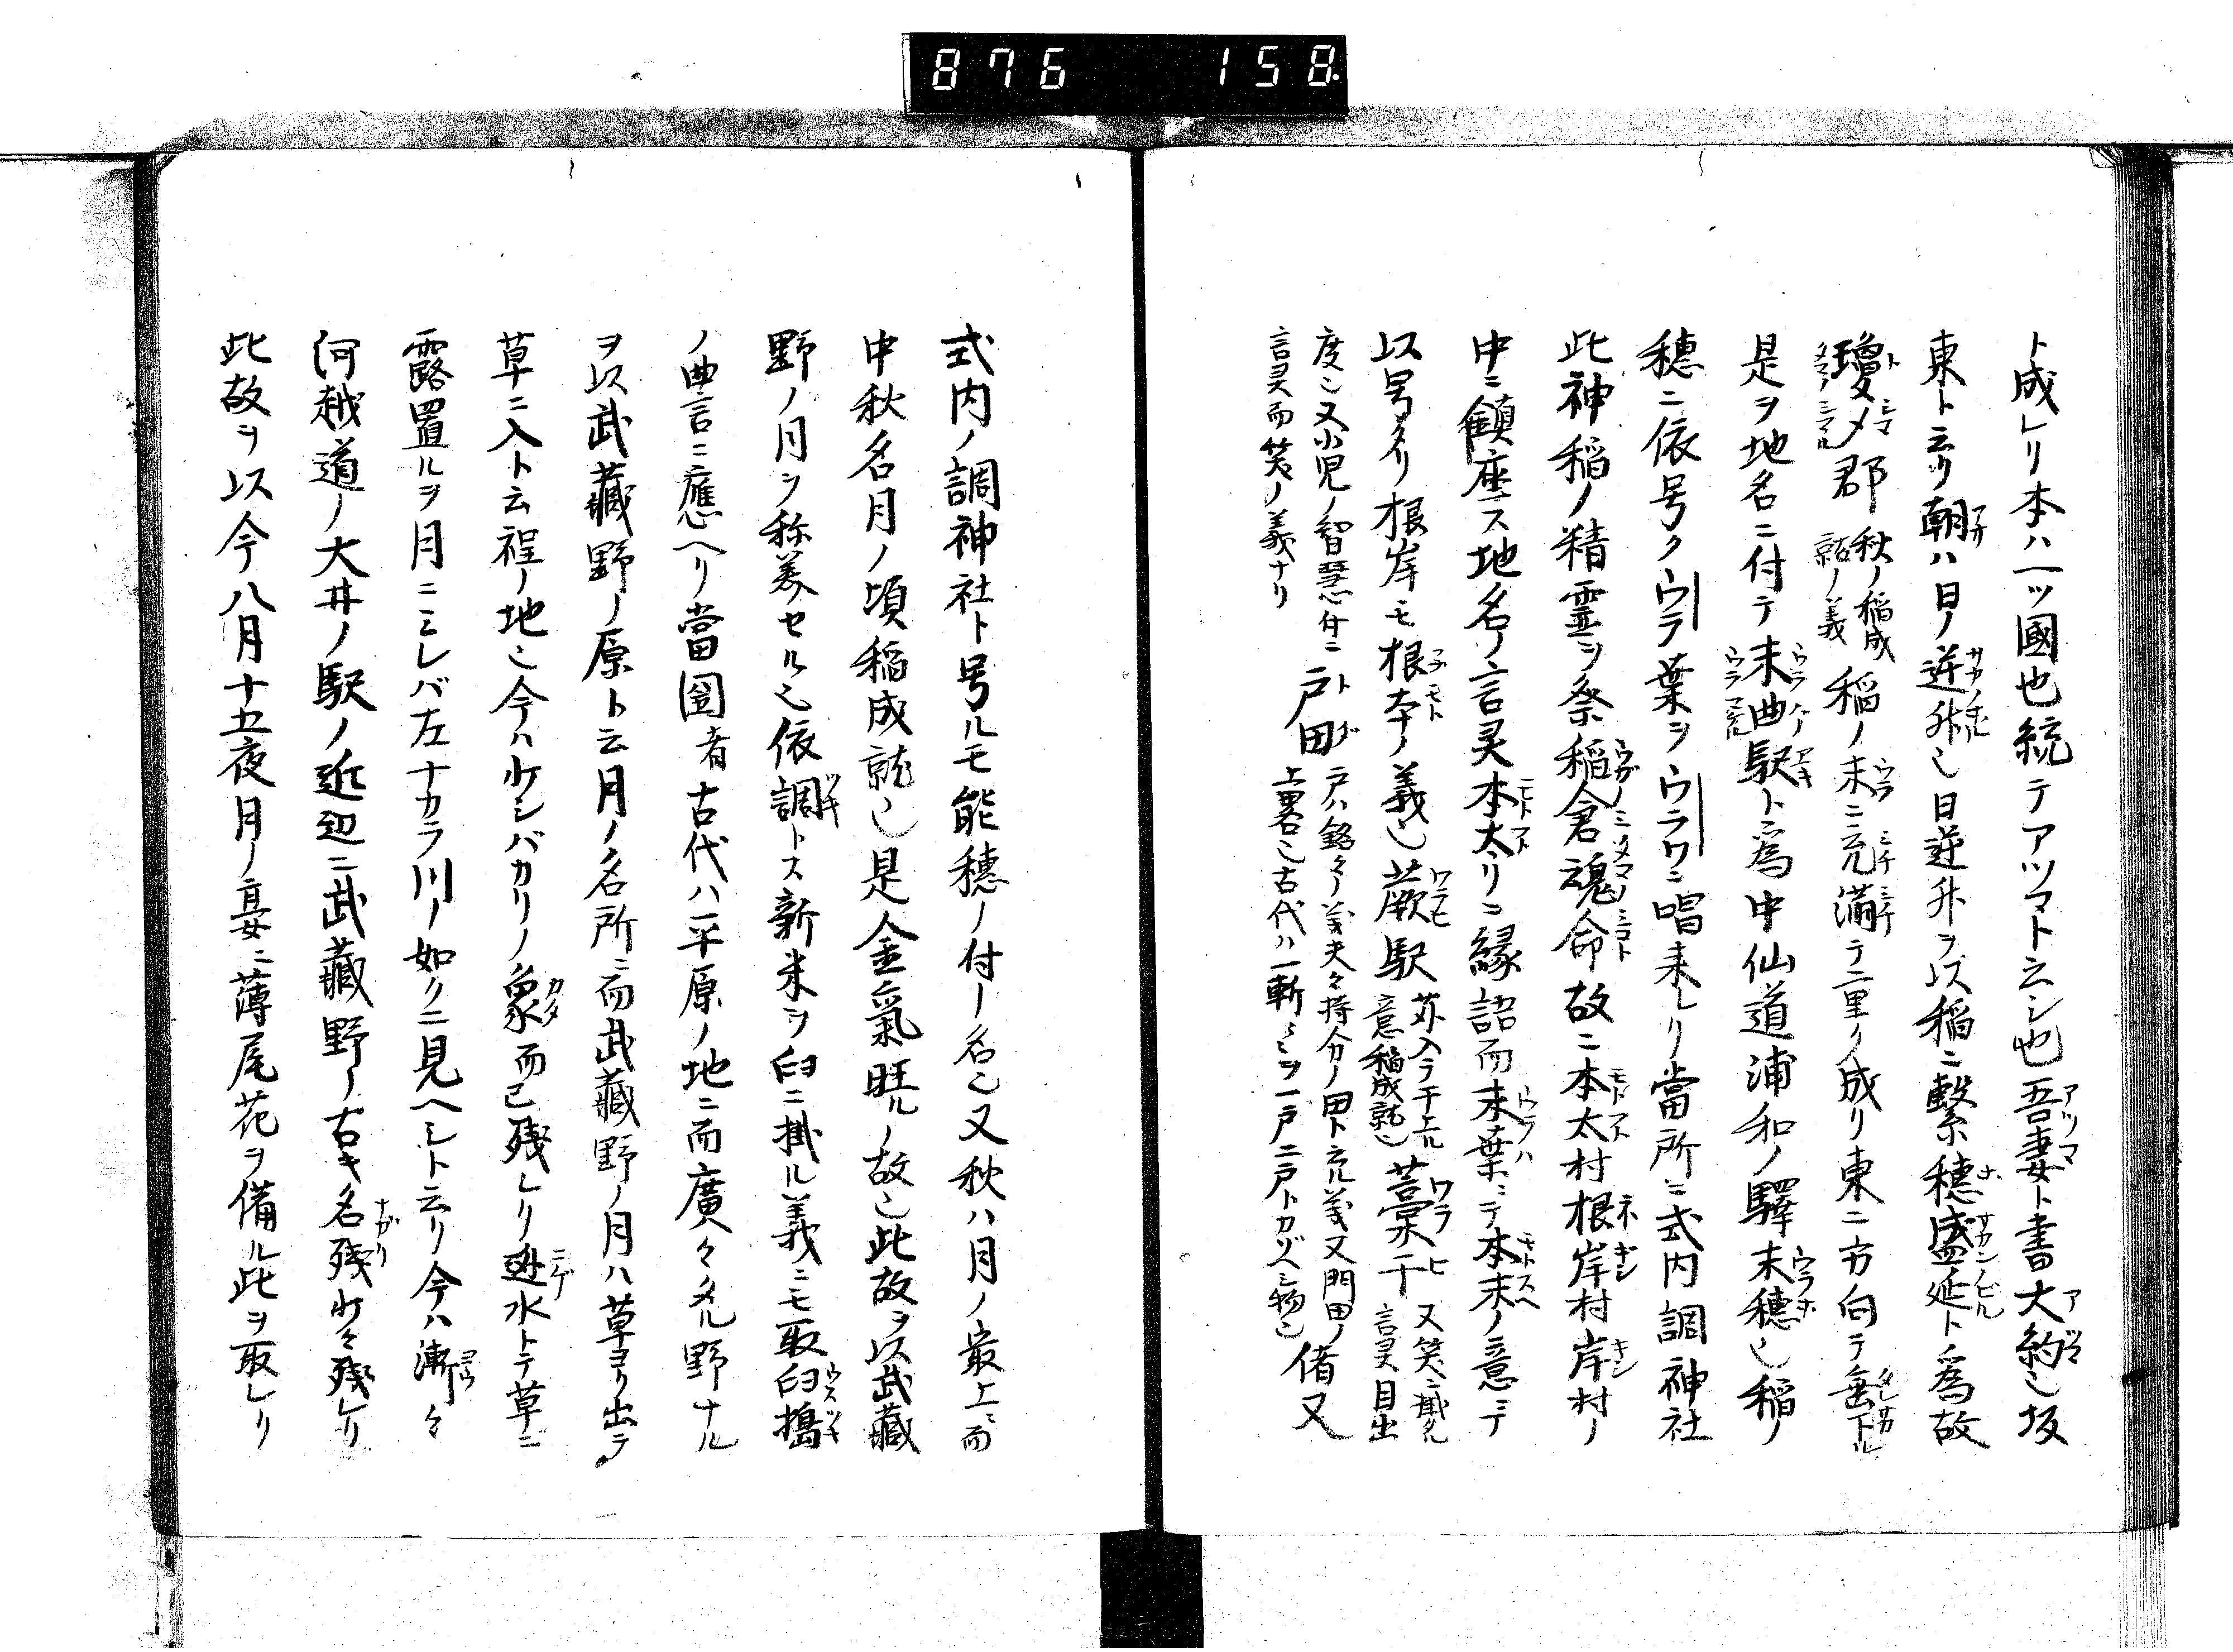 876 158
ト成レリ本ハ一ツ國也統テアツマト云シ也吾妻ト書大約也坂
東ト云リ朝ハ日ノ逆升也日逆升ヲ以稲ニ繋穂盛延ト為故
瓊メ郡秋ノ稲成就ノ義稲ノ末ニ充満テ二里リ成リ東ニ方向テ垂下ル
是ヲ地名ニ付テ末曲駅ト為中仙道浦和ノ驛末穂也稲ノ
穂ニ依号クウラ葉ヲウラワニ唱来レリ當所ニ式内調神社
此神稲ノ精霊ヲ祭稲倉魂命故ニ本太村根岸村岸村ノ
中ニ鎮座ス地名ノ言灵本太リニ縁語而末葉ニテ本末ノ意ニテ
以号タリ根岸モ根本ノ義也蕨駅苏入ラ干上ル意稲成就也藁干又笑ニ掛タル言灵目出
度也又小児ノ智慧付ニ言灵而笑ノ義ナリ戸田戸ハ銘々ノ義夫々持分ノ田ト云ル義又門田ノ上畧也古代ハ一軒二ミヲ一戸二戸トカゾヘシ物也偖又
式内ノ調神社ト号ルモ能穂ノ付ノ名也又秋ハ月ノ最上ニ而
中秋名月ノ頃稲成就也是金氣旺ルノ故也此故ヲ以武藏
野ノ月ヲ称美セル也依調トス新米ヲ臼ニ掛ル義ニモ取臼搗
ノ曲言ニ應ヘリ當圀者古代ハ平原ノ地ニ而廣々タル野ナル
ヲ以武藏野ノ原ト云月ノ名所ニ而武藏野ノ月ハ草ヨリ出テ
草ニ入ト云程ノ地也今ハ少シバカリノ象而已残レリ逃水トテ草ニ
露置ルヲ月ニミレバ左ナカラ川ノ如クニ見ヘシト云リ今ハ漸々
河越道ノ大井ノ駅ノ近辺ニ武藏野ノ古キ名残少々残レリ
此故ヲ以今八月十五夜月ノ宴ニ薄尾花ヲ備ル此ヲ取レリ